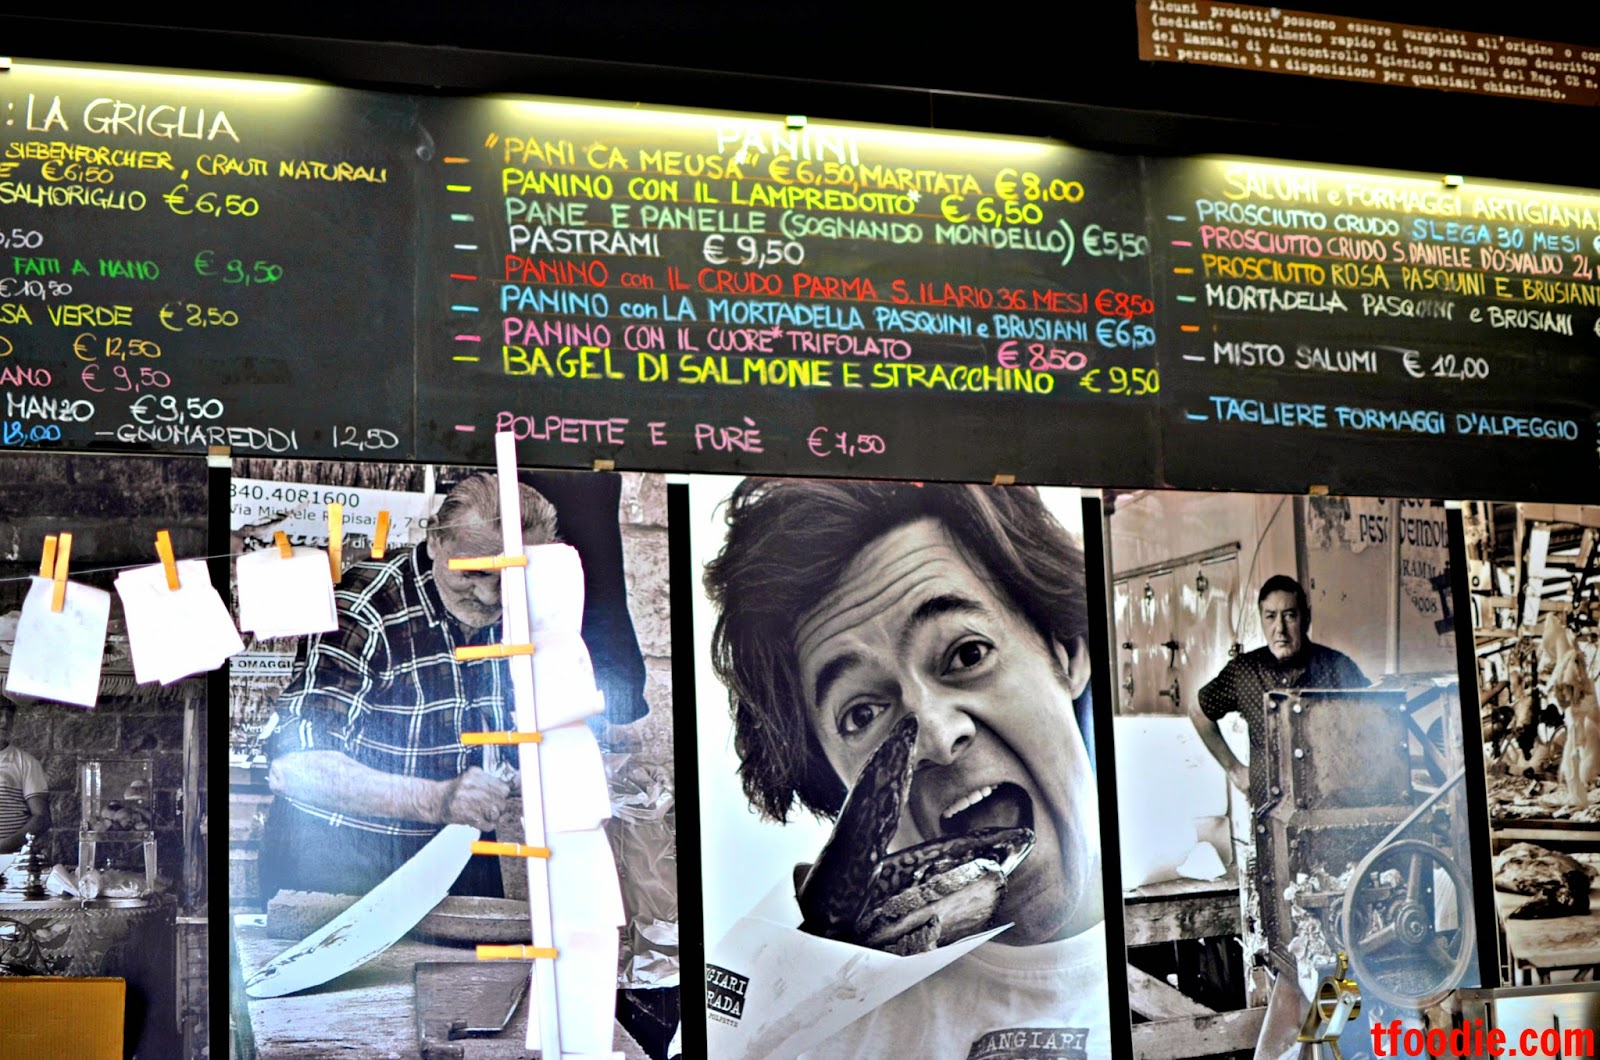 Alcuni prodotti* possono essere surgelati all'origine o
(mediante abbattimento rapido di temperatura) come descritto
del Manuale di Autocontrollo Igienico ai sensi del Reg. CE n.
Il personale è a disposizione per qualsiasi chiarimento.
: LA GRIGLIA
SIEBENFORCHER, CRAUTI NATURALI
€ 6,50
SALMORIGLIO € 6,50
,50
FATTI A MANO € 9,50
€ 10,50
SA VERDE € 8,50
€ 12,50
ANO € 9,50
MANZO € 9,50
18,00 - GNUMAREDDI 12,50
PANINI
- "PANI CA MEUSA*" € 6,50, MARITATA € 8,00
- PANINO CON IL LAMPREDOTTO* € 6,50
- PANE E PANELLE (SOGNANDO MONDELLO) € 5,50
- PASTRAMI € 9,50
- PANINO con IL CRUDO PARMA S. ILARIO 36 MESI € 8,50
- PANINO con LA MORTADELLA PASQUINI e BRUSIANI € 6,50
- PANINO CON IL CUORE* TRIFOLATO € 8,50
- BAGEL DI SALMONE E STRACCHINO € 9,50
- POLPETTE E PURÈ € 7,50
SALUMI e FORMAGGI ARTIGIANA
- PROSCIUTTO CRUDO SLEGA 30 MESI €
- PROSCIUTTO CRUDO S. DANIELE D'OSVALDO 24
- PROSCIUTTO ROSA PASQUINI E BRUSIAN
- MORTADELLA PASQUINI e BRUSIANI €
-
- MISTO SALUMI € 12,00
- TAGLIERE FORMAGGI D'ALPEGGIO
340.4081600
OMAGGI
GIARI
RADA
POLPETTE
ANGIARI
tfoodie.com